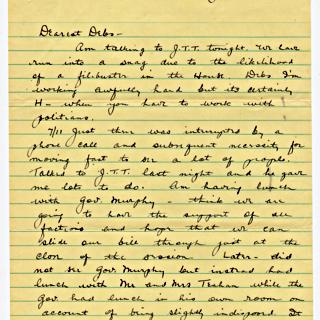 Dearest Debs-
Am talking to J.T.T. tonight. We have
run into a snag due to the likelihood
of a filibuster in the House. Debs I'm
working awfully hard but its certainly
H- when you have to work with
politicians.
7/11 Just then was interrupted by a
phone call and subsequent necessity for
moving fast to see a lot of people.
Talked to J.T.T. last night and he gave
me lots to do. Am having lunch
with Gov. Murphy - think we are
going to have the support of all
factions and hope that we can
slide our bill through just at the
close of the session. Later- did
not see Gov Murphy but instead had
lunch with Mr and Mrs while the
Gov. had lunch in his own room on
account of being slightly indisposed. It